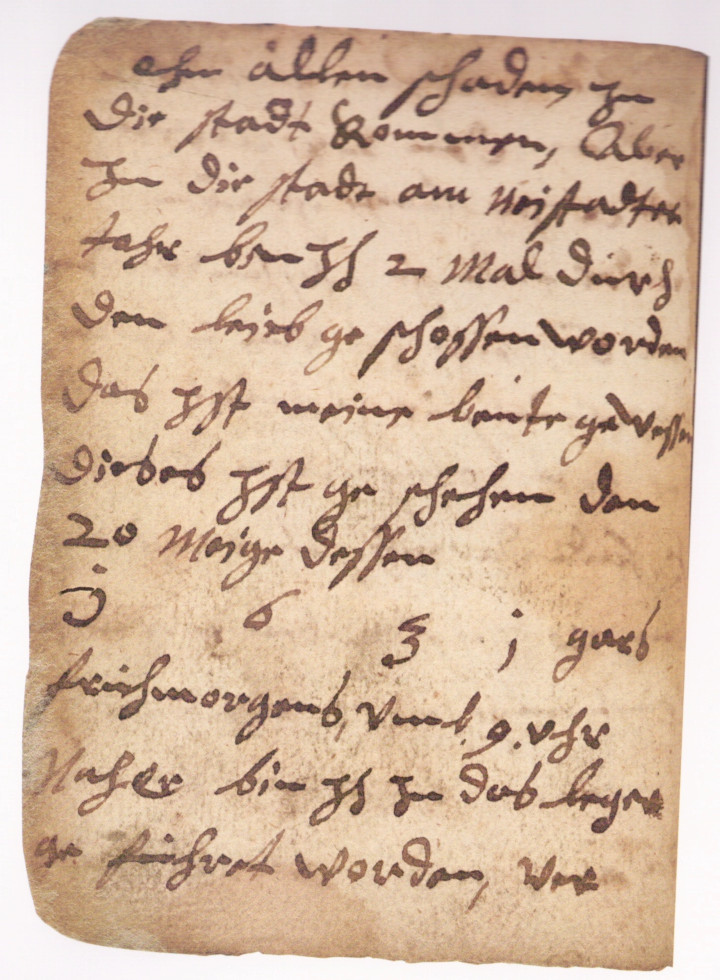 ohn allen schaden, In
die stadt kommen, Aber
In die stadt am Neistadter
tohr bin Ich 2 Mal durch
den leieb ge schossen worden
das Ist meine beute gewessen
dieses Ist ge schehen den
20 Meige dessen
j 6 3 j gars
fruhmorgens, vmb 9. vhr
Naher bin Ich In das leger
ge fuhret worden, ver